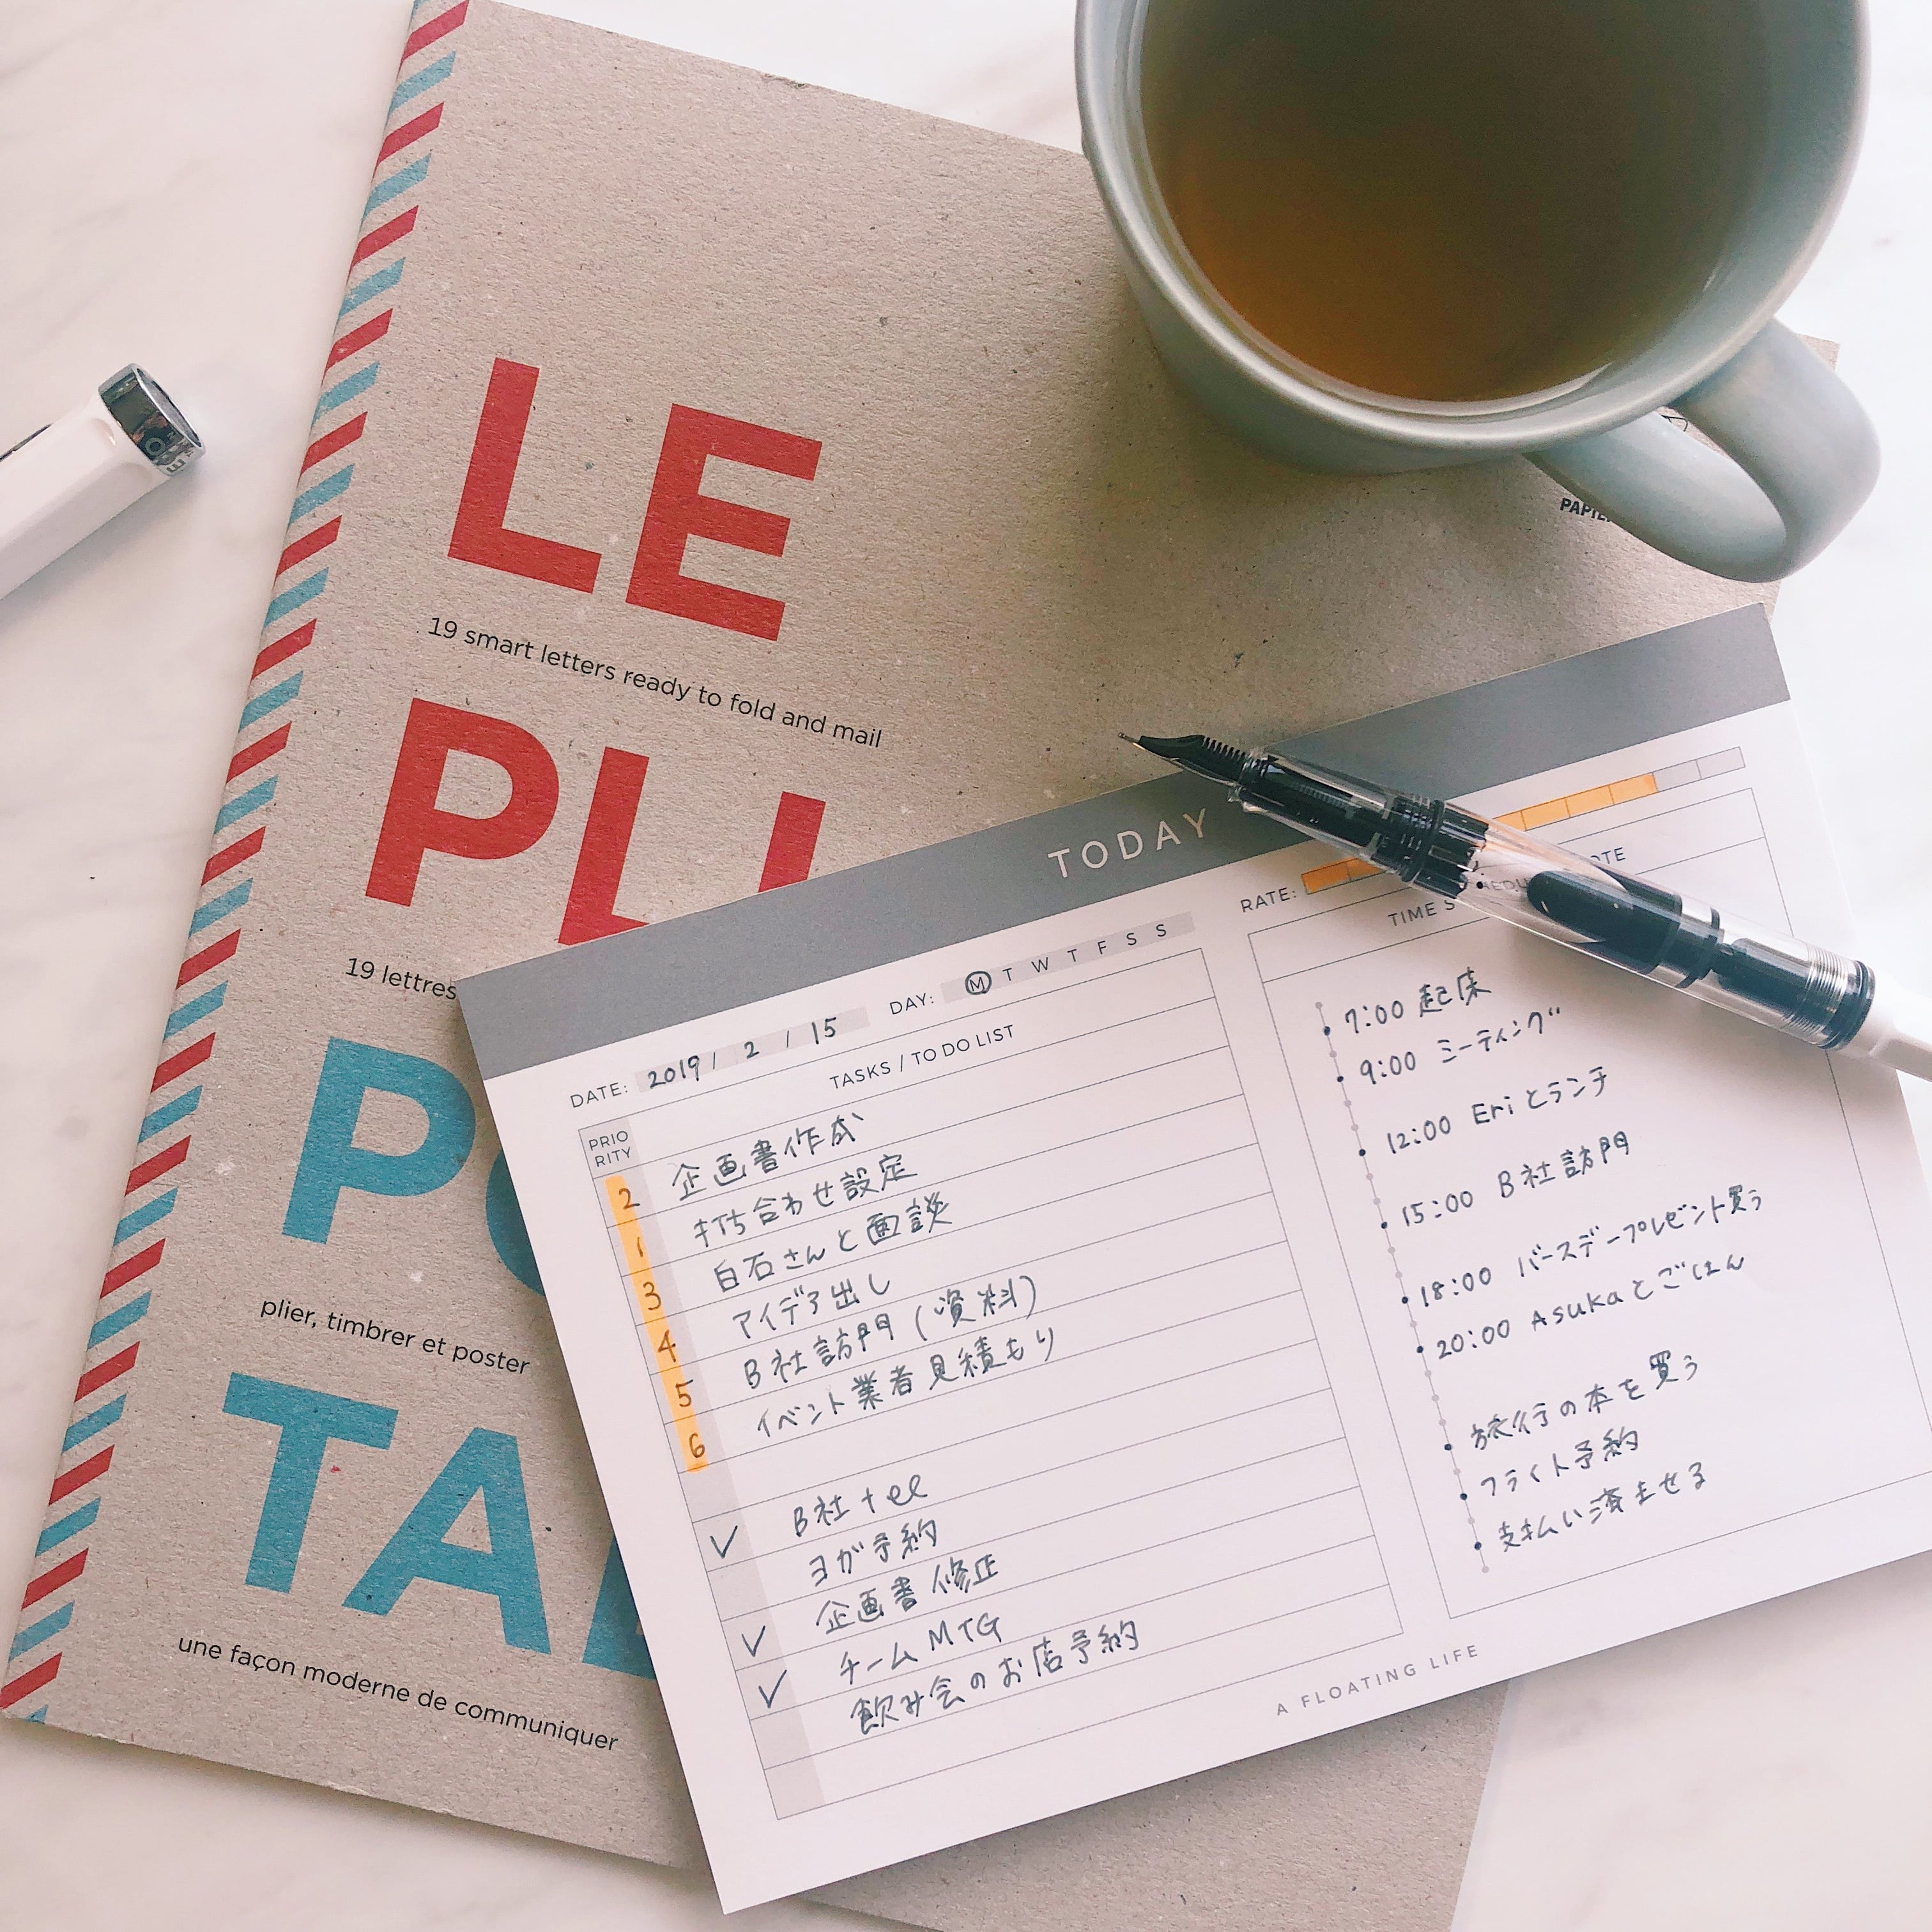 LE
19 smart letters ready to fold and mail
PLI
19 lettres
plier, timbrer et poster
TA
une façon moderne de communiquer
TODAY
DATE: 2019 / 2 / 15 DAY: M T W T F S S
TASKS / TO DO LIST
PRIO
RITY
2 企画書作成
1 打ち合わせ設定
3 白石さんと面談
4 アイデア出し
5 B社訪問(資料)
6 イベント業者見積もり
✓ B社tel
ヨガ予約
✓ 企画書修正
✓ チームMTG
飲み会のお店予約
RATE:
TIME
7:00 起床
9:00 ミーティング
12:00 Eriとランチ
15:00 B社訪問
18:00 バースデープレゼント買う
20:00 Asukaとごはん
旅行の本を買う
フライト予約
支払い済ませる
A FLOATING LIFE